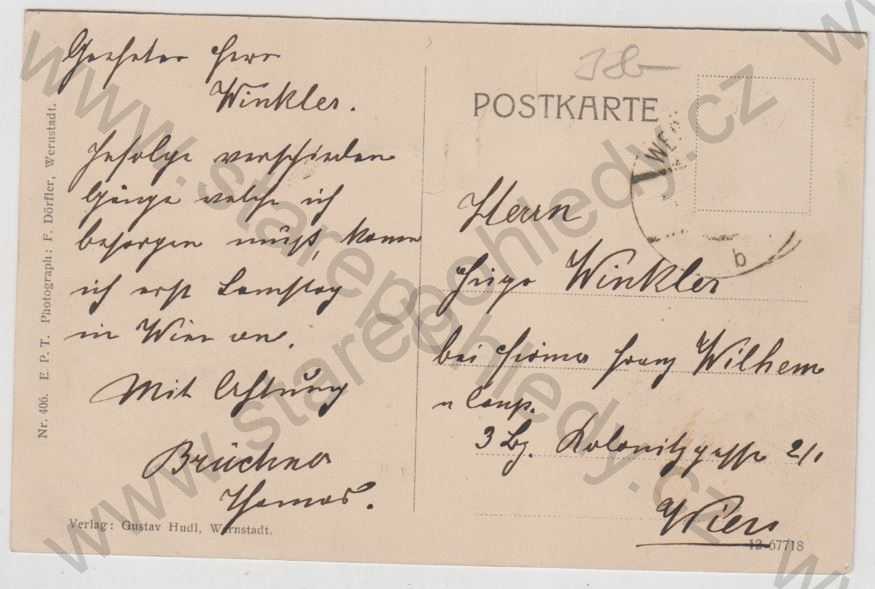 Geehrter Herr
Winkler.
Infolge verschieden
Gänge welche ich
besorgen muß, komm
ich erst Samstag
in Wien an.
Mit Achtung
Brückner
Thomas.
Nr. 406. E. P. T. Photograph: F. Dörfler, Wernstadt.
Verlag: Gustav Hudl, Wernstadt.
POSTKARTE
WER
b
Herrn
Hugo Winkler
bei Firma Franz Wilhem
u Comp.
3 Bz. Kolonitzgasse 2/1
Wien
12-67718
www.starepohledy.cz
www.starepohledy.cz